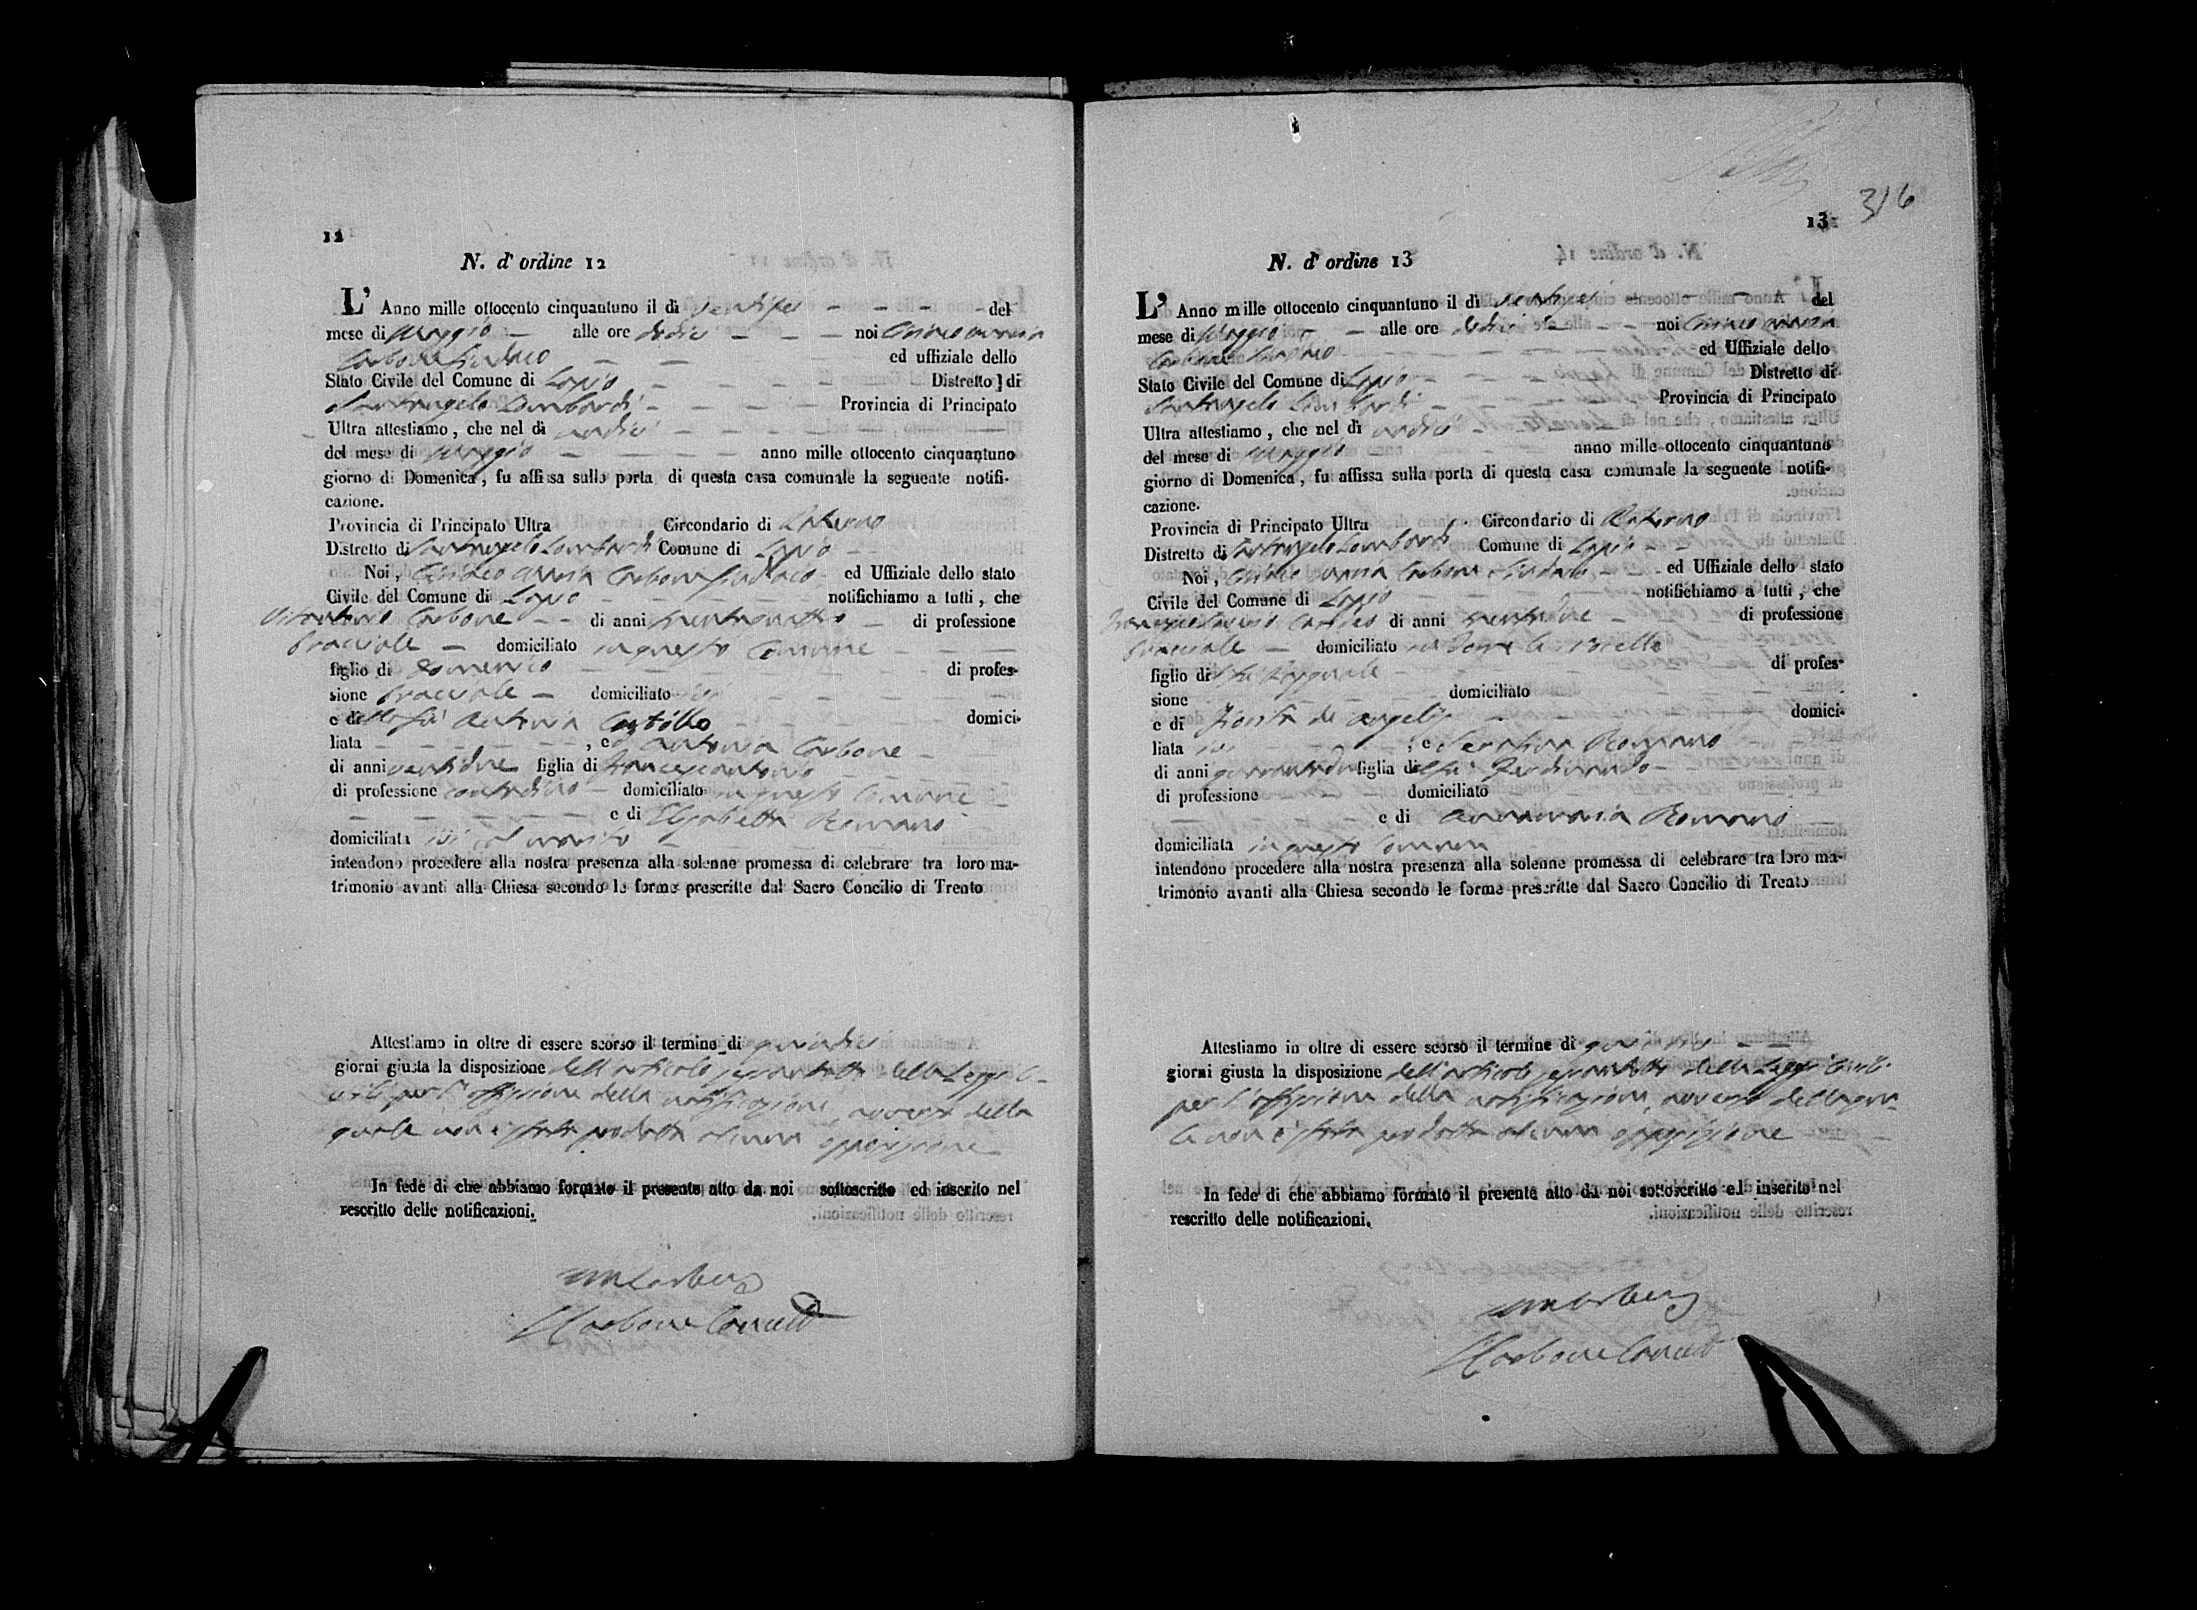 12
N. d' ordine 12
L' Anno mille ottocento cinquantuno il dì ventisei del
mese di Maggio alle ore dodici noi Ciriaco Maria
Carbone Sindaco ed uffiziale dello
Stato Civile del Comune di Lapio Distretto di
Santangelo Lombardi Provincia di Principato
Ultra attestiamo, che nel dì undici
del mese di Maggio anno mille ottocento cinquantuno
giorno di Domenica, fu affissa sulla porta di questa casa comunale la seguente notifi-
cazione.
Provincia di Principato Ultra Circondario di Paterno
Distretto di Santangelo Lombardi Comune di Lapio
Noi, Ciriaco Maria Carbone Sindaco ed Uffiziale dello stato
Civile del Comune di Lapio notifichiamo a tutti, che
Vitantonio Carbone di anni trentaquattro di professione
bracciale domiciliato in questo Comune
figlio di Domenico di profes-
sione bracciale domiciliato ivi
e di della fu Antonia domici-
liata , e Antonia Carbone
di anni ventidue figlia di Francescantonio
di professione contadino domiciliato in questo Comune
e di Elisabetta Romano
domiciliata ivi col marito
intendono procedere alla nostra presenza alla solenne promessa di celebrare tra loro ma-
trimonio avanti alla Chiesa secondo le forme prescritte dal Sacro Concilio di Trento
Attestiamo in oltre di essere scorso il termine di quindici
giorni giusta la disposizione dell'articolo sessantotto delle Leggi Ci-
vili per l'affissione della notificazione, avverso della
quale non è stata prodotta alcuna opposizione
In fede di che abbiamo formato il presente atto da noi sottoscritto ed inserito nel
rescritto delle notificazioni.
Carbone
Carbone
316
13
N. d' ordine 13
L' Anno mille ottocento cinquantuno il dì ventisei del
mese di Maggio alle ore dodici noi Ciriaco Maria
Carbone Sindaco ed Uffiziale dello
Stato Civile del Comune di Lapio Distretto di
Santangelo Lombardi Provincia di Principato
Ultra attestiamo, che nel dì undici
del mese di Maggio anno mille ottocento cinquantuno
giorno di Domenica, fu affissa sulla porta di questa casa comunale la seguente notifi-
cazione.
Provincia di Principato Ultra Circondario di Paterno
Distretto di Santangelo Lombardi Comune di Lapio
Noi, Ciriaco Maria Carbone Sindaco ed Uffiziale dello stato
Civile del Comune di Lapio notifichiamo a tutti, che
di anni trentadue di professione
bracciale domiciliato in Torre le Nocelle
figlio di fu Pasquale di profes-
sione domiciliato
e di de Angelis domici-
liata ivi , e Serafina Romano
di anni quarantadue figlia del fu Ferdinando
di professione domiciliato
e di Annamaria Romano
domiciliata in questo Comune
intendono procedere alla nostra presenza alla solenne promessa di celebrare tra loro ma-
trimonio avanti alla Chiesa secondo le forme prescritte dal Sacro Concilio di Trento
Attestiamo in oltre di essere scorso il termine di quindici
giorni giusta la disposizione dell'articolo sessantotto delle Leggi Civili
per l'affissione della notificazione, avverso della qua-
le non è stata prodotta alcuna opposizione
In fede di che abbiamo formato il presente atto da noi sottoscritto ed inserito nel
rescritto delle notificazioni.
Carbone
Carbone